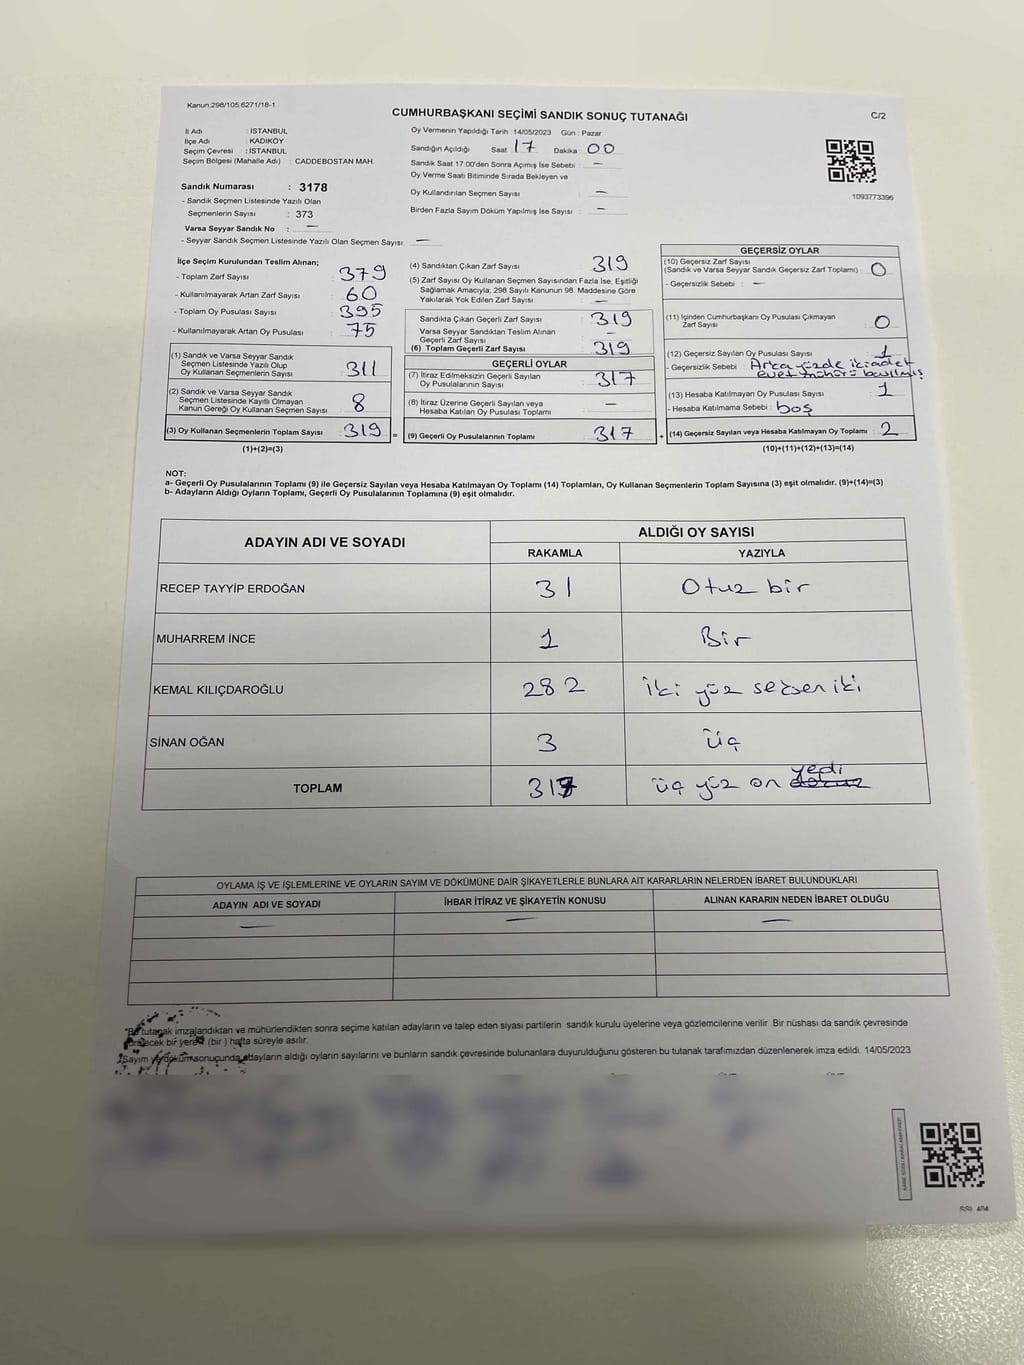 Kanun:298/105;6271/18-1
CUMHURBAŞKANI SEÇİMİ SANDIK SONUÇ TUTANAĞI
C/2
İl Adı : İSTANBUL
İlçe Adı : KADIKÖY
Seçim Çevresi : İSTANBUL
Seçim Bölgesi (Mahalle Adı) : CADDEBOSTAN MAH.
Sandık Numarası : 3178
- Sandık Seçmen Listesinde Yazılı Olan
Seçmenlerin Sayısı : 373
Varsa Seyyar Sandık No : —
- Seyyar Sandık Seçmen Listesinde Yazılı Olan Seçmen Sayısı: —
Oy Vermenin Yapıldığı Tarih : 14/05/2023 Gün : Pazar
Sandığın Açıldığı Saat 17 Dakika : 00
Sandık Saat 17:00'den Sonra Açımış İse Sebebi : —
Oy Verme Saati Bitiminde Sırada Bekleyen ve
Oy Kullandırılan Seçmen Sayısı : —
Birden Fazla Sayım Döküm Yapılmış İse Sayısı : —
1093773396
İlçe Seçim Kurulundan Teslim Alınan;
- Toplam Zarf Sayısı : 379
- Kullanılmayarak Artan Zarf Sayısı : 60
- Toplam Oy Pusulası Sayısı : 395
- Kullanılmayarak Artan Oy Pusulası : 75
(1) Sandık ve Varsa Seyyar Sandık
Seçmen Listesinde Yazılı Olup
Oy Kullanan Seçmenlerin Sayısı : 311
(2) Sandık ve Varsa Seyyar Sandık
Seçmen Listesinde Kayıtlı Olmayan
Kanun Gereği Oy Kullanan Seçmen Sayısı : 8
(3) Oy Kullanan Seçmenlerin Toplam Sayısı : 319 =
(1)+(2)=(3)
(4) Sandıktan Çıkan Zarf Sayısı : 319
(5) Zarf Sayısı Oy Kullanan Seçmen Sayısından Fazla İse, Eşitliği
Sağlamak Amacıyla; 298 Sayılı Kanunun 98. Maddesine Göre
Yakılarak Yok Edilen Zarf Sayısı : —
Sandıkta Çıkan Geçerli Zarf Sayısı : 319
Varsa Seyyar Sandıktan Teslim Alınan
Geçerli Zarf Sayısı : —
(6) Toplam Geçerli Zarf Sayısı : 319
GEÇERLİ OYLAR
(7) İtiraz Edilmeksizin Geçerli Sayılan
Oy Pusulalarının Sayısı : 317
(8) İtiraz Üzerine Geçerli Sayılan veya
Hesaba Katılan Oy Pusulası Toplamı : —
(9) Geçerli Oy Pusulalarının Toplamı : 317 +
GEÇERSİZ OYLAR
(10) Geçersiz Zarf Sayısı
(Sandık ve Varsa Seyyar Sandık Geçersiz Zarf Toplamı) : 0
- Geçersizlik Sebebi : —
(11) İçinden Cumhurbaşkanı Oy Pusulası Çıkmayan
Zarf Sayısı : 0
(12) Geçersiz Sayılan Oy Pusulası Sayısı : 1
- Geçersizlik Sebebi : Arka yüzde iki adet
evet mührü basılmış
(13) Hesaba Katılmayan Oy Pusulası Sayısı : 1
- Hesaba Katılmama Sebebi : boş
(14) Geçersiz Sayılan veya Hesaba Katılmayan Oy Toplamı : 2
(10)+(11)+(12)+(13)=(14)
NOT:
a- Geçerli Oy Pusulalarının Toplamı (9) ile Geçersiz Sayılan veya Hesaba Katılmayan Oy Toplamı (14) Toplamları, Oy Kullanan Seçmenlerin Toplam Sayısına (3) eşit olmalıdır. (9)+(14)=(3)
b- Adayların Aldığı Oyların Toplamı, Geçerli Oy Pusulalarının Toplamına (9) eşit olmalıdır.
ADAYIN ADI VE SOYADI ALDIĞI OY SAYISI
RAKAMLA YAZIYLA
RECEP TAYYİP ERDOĞAN 31 Otuz bir
MUHARREM İNCE 1 Bir
KEMAL KILIÇDAROĞLU 282 İki yüz seksen iki
SİNAN OĞAN 3 üç
TOPLAM 317 üç yüz on yedi
OYLAMA İŞ VE İŞLEMLERİNE VE OYLARIN SAYIM VE DÖKÜMÜNE DAİR ŞİKAYETLERLE BUNLARA AİT KARARLARIN NELERDEN İBARET BULUNDUKLARI
ADAYIN ADI VE SOYADI İHBAR İTİRAZ VE ŞİKAYETİN KONUSU ALINAN KARARIN NEDEN İBARET OLDUĞU
— — —
*Bu tutanak imzalandıktan ve mühürlendikten sonra seçime katılan adayların ve talep eden siyasi partilerin sandık kurulu üyelerine veya gözlemcilerine verilir .Bir nüshası da sandık çevresinde
görülecek bir yere 1 (bir ) hafta süreyle asılır.
*Sayım ve döküm sonucunda adayların aldığı oyların sayılarını ve bunların sandık çevresinde bulunanlara duyurulduğunu gösteren bu tutanak tarafımızdan düzenlenerek imza edildi. 14/05/2023